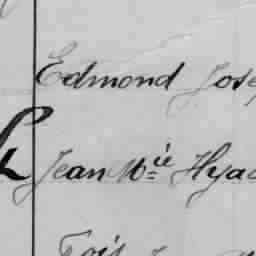 Edmond Jose
Jean Mie Hyac
Fois